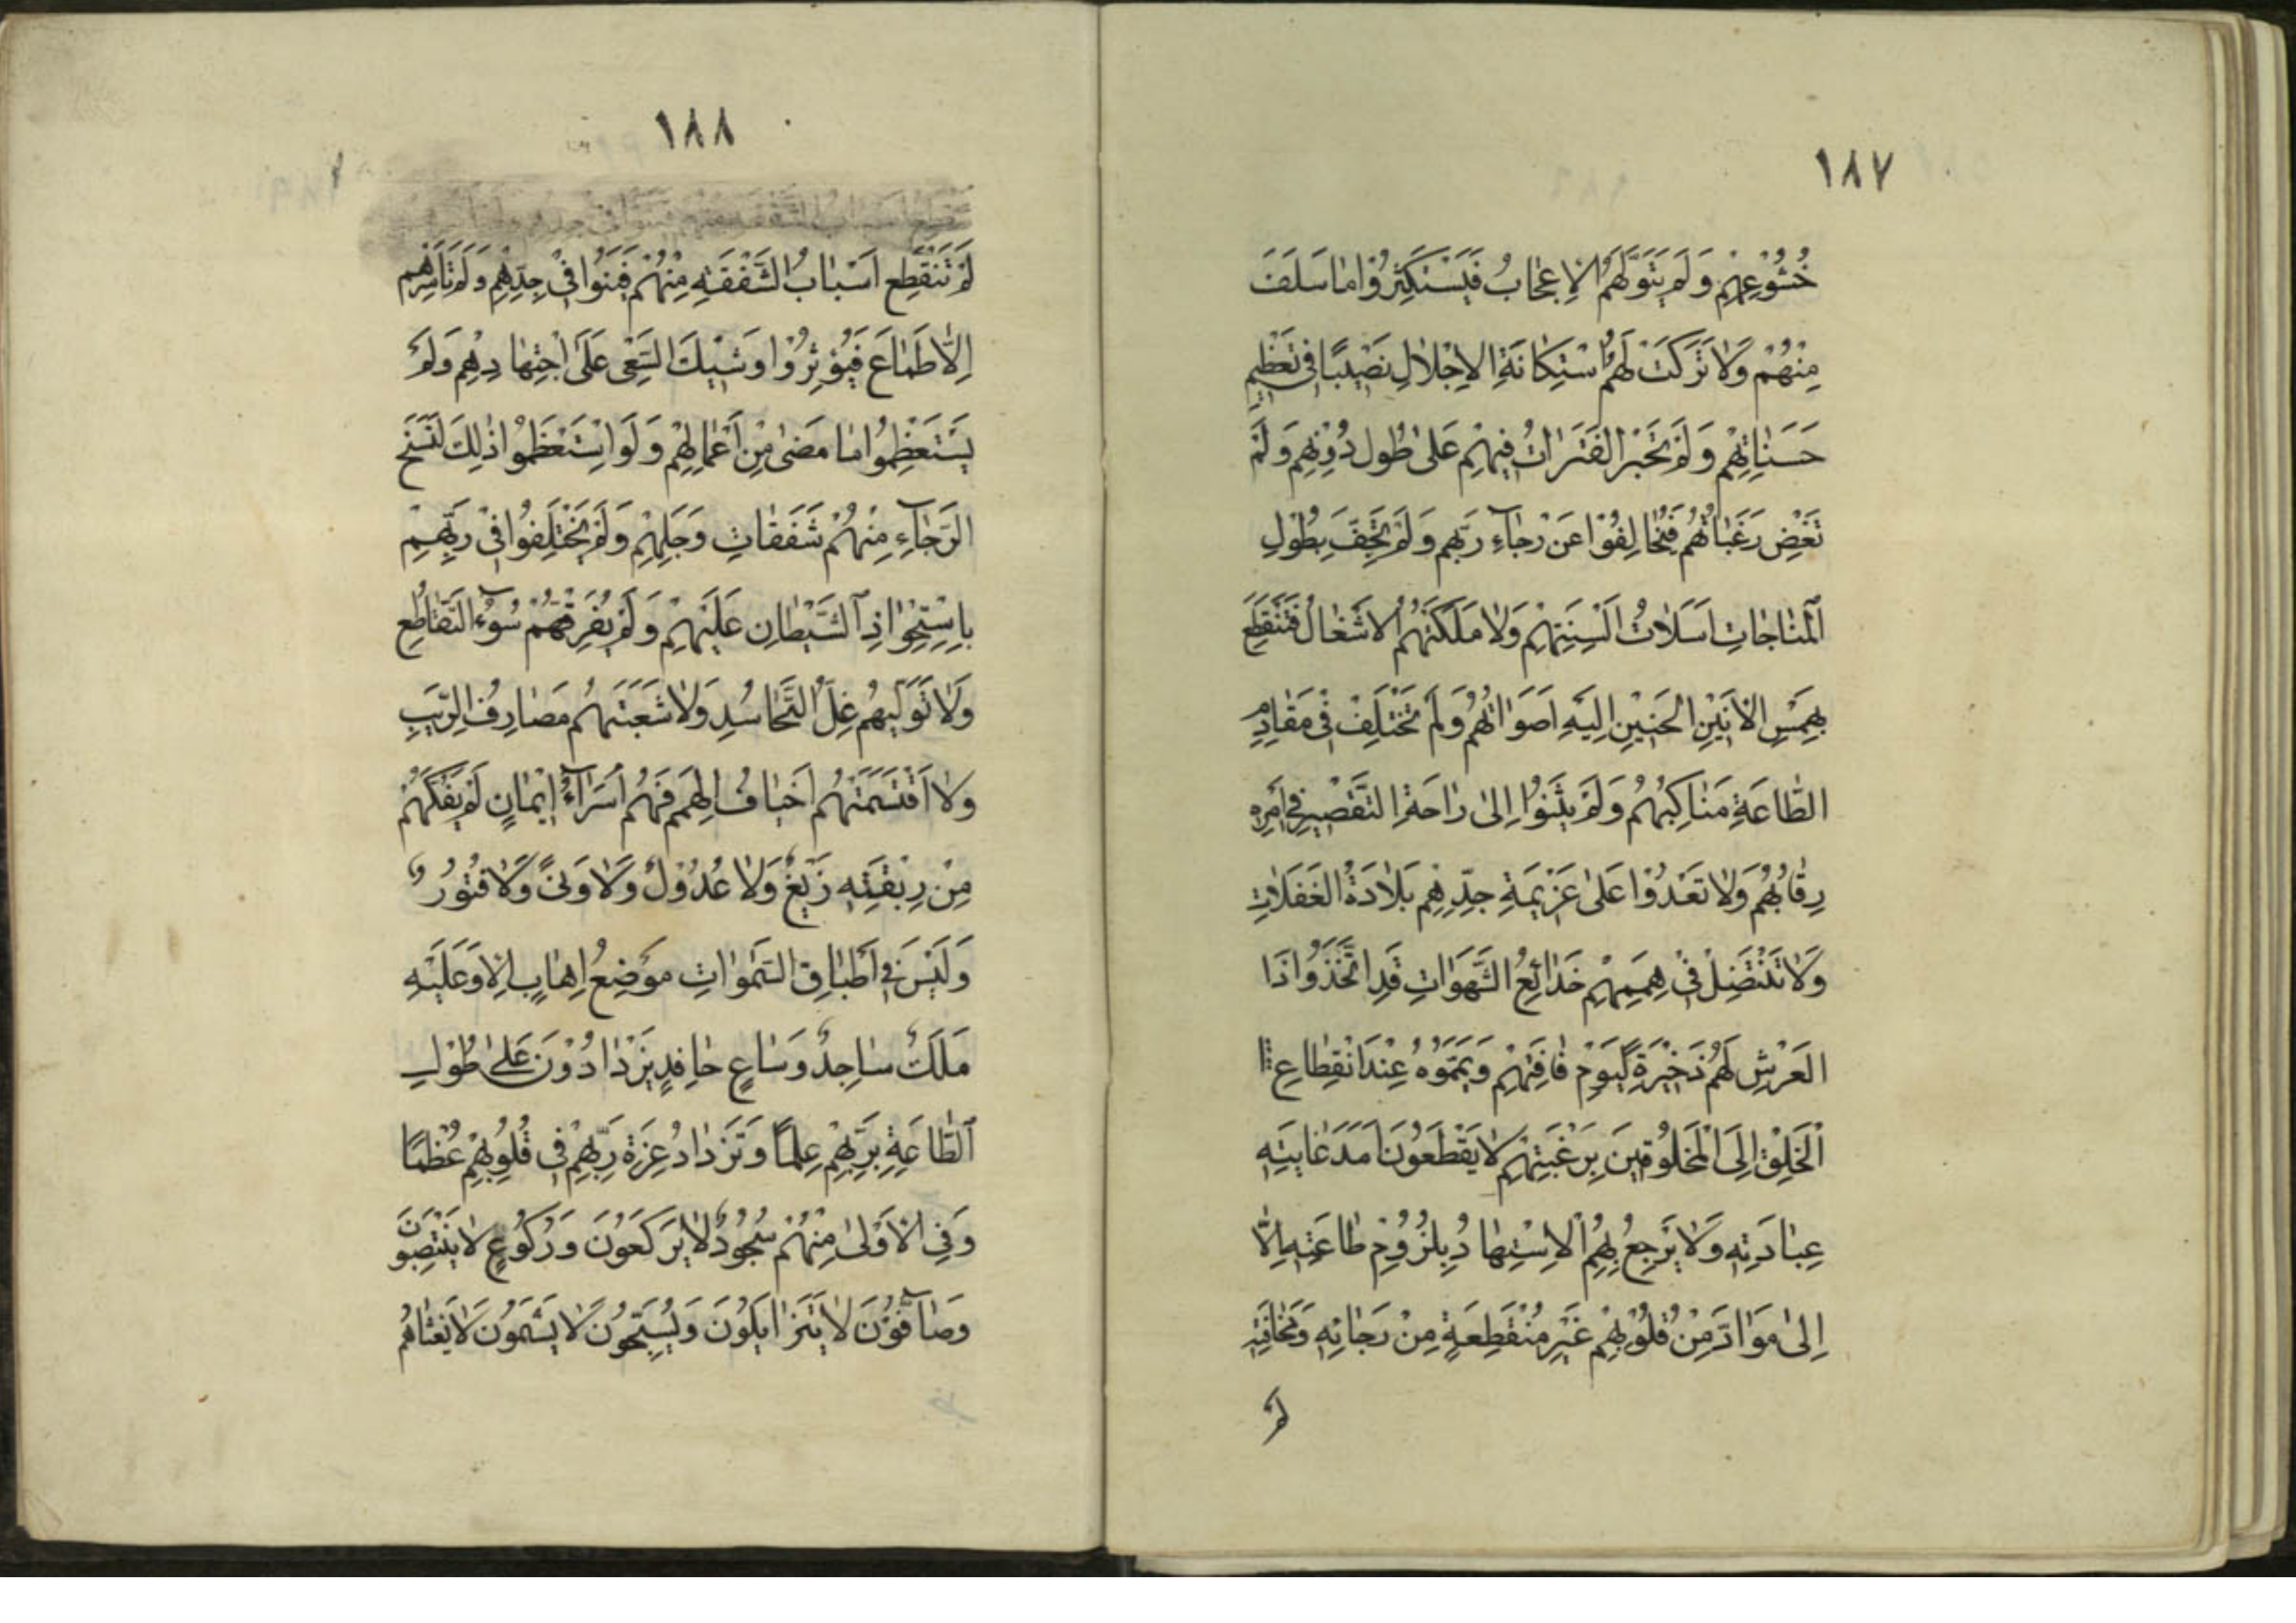 ١٨٧
خُشُوْعِهِمْ وَلَمْ يَتَوَلَّهُمُ الْاِعْجَابُ فَيَسْتَكْثِرُوْا مَا سَلَفَ
مِنْهُمْ وَلَا تَرَكَتْ لَهُمُ اسْتِكَانَةُ الْاِجْلَالِ نَصِيْبًا فِى تَعْظِيْمِ
حَسَنَاتِهِمْ وَلَمْ تَجْرِ الْفَتَرَاتُ فِيْهِمْ عَلٰى طُولِ دُؤُبِهِمْ وَلَمْ
تَغِضْ رَغَبَاتُهُمْ فَيُخَالِفُوْا عَنْ رَجَآءِ رَبِّهِمْ وَلَمْ تَجِفَّ بِطُوْلِ
الْمُنَاجَاتِ اَسَلَاتُ اَلْسِنَتِهِمْ وَلَا مَلَكَتْهُمُ الْاَشْغَالُ فَتَنْقَطِعَ
بِهَمْسِ الْاَنِيْنِ الْحَنِيْنِ اِلَيْهِ اَصْوَاتُهُمْ وَلَمْ تَخْتَلِفْ فِىْ مَقَادِمِ
الطَّاعَةِ مَنَاكِبُهُمْ وَلَمْ يَثْنُوْا اِلٰى رَاحَةِ التَّقْصِيْرِ فِى اَمْرِهِ
رِقَابَهُمْ وَلَا تَعْدُوْا عَلٰى عَزِيْمَةِ جِدِّهِمْ بَلَادَةُ الْغَفَلَاتِ
وَلَا تَنْتَضِلُ فِىْ هِمَمِهِمْ خَدَائِعُ الشَّهَوَاتِ قَدِ اتَّخَذُوْا ذَا
الْعَرْشِ لَهُمْ ذَخِيْرَةً لِيَوْمِ فَاقَتِهِمْ وَيَمَّمُوْهُ عِنْدَ انْقِطَاعِ
الْخَلْقِ اِلَى الْمَخْلُوْقِيْنَ بِرَغْبَتِهِمْ لَا يَقْطَعُوْنَ اَمَدَ غَايَتِهِ
عِبَادَتِهِ وَلَا يَرْجِعُ بِهِمُ الْاِسْتِهْتَادُ بِلُزُوْمِ طَاعَتِهِ اِلَّا
اِلٰى مَوَادَّ مِنْ قُلُوْبِهِمْ غَيْرِ مُنْقَطِعَةٍ مِنْ رَجَائِهِ وَمَخَافَتِهِ
لَمْ
١٨٨
لَمْ تَنْقَطِعْ اَسْبَابُ الشَّفَقَةِ مِنْهُمْ فَيَنُوْا فِىْ جِدِّهِمْ وَلَمْ تَاْسِرْهُمُ
الْاَطْمَاعُ فَيُؤْثِرُوْا وَشِيْكَ السَّعْىِ عَلَى اجْتِهَادِهِمْ وَلَمْ
يَسْتَعْظِمُوْا مَا مَضٰى مِنْ اَعْمَالِهِمْ وَلَوِ اسْتَعْظَمُوْا ذٰلِكَ لَنَسَخَ
الرَّجَآءِ مِنْهُمْ شَفَقَاتِ وَجَلِهِمْ وَلَمْ يَخْتَلِفُوْا فِىْ رَبِّهِمْ
بِاسْتِحْوَاذِ الشَّيْطَانِ عَلَيْهِمْ وَلَمْ يُفَرِّقْهُمْ سُوْٓءُ التَّقَاطُعِ
وَلَا تَوَلَّيهُمْ غِلُّ التَّحَاسُدِ وَلَا شَعَّبَتْهُمْ مَصَارِفُ الرِّيَبِ
وَلَا اقْتَسَمَتْهُمْ اَخْيَافُ الْهِمَمِ فَهُمْ اُسَرَآءُ اِيْمَانٍ لَمْ يَفُكَّهُمْ
مِنْ رِبْقَتِهِ زَيْغٌ وَلَا عُدُوْلٌ وَلَا وَنًى وَلَا فُتُوْرٌ
وَلَيْسَ فِىْ اَطْبَاقِ السَّمٰوَاتِ مَوْضِعُ اِهَابٍ اِلَّا وَعَلَيْهِ
مَلَكٌ سَاجِدٌ وَسَاعٍ حَافِدٍ يَزْدَادُوْنَ عَلٰى طُوْلِ
الطَّاعَةِ بِرَبِّهِمْ عِلْمًا وَتَزْدَادُ عِزَّةُ رَبِّهِمْ فِى قُلُوْبِهِمْ عُظْمًا
وَفِى الْاُوْلٰى مِنْهُمْ سُجُوْدٌ لَا يَرْكَعُوْنَ وَرُكُوْعٍ لَا يَنْتَصِبُوْنَ
وَصَآفُّوْنَ لَا يَتَزَايَلُوْنَ وَيُسَبِّحُوْنَ لَا يَسْئَمُوْنَ لَا يَغْشَاهُمْ